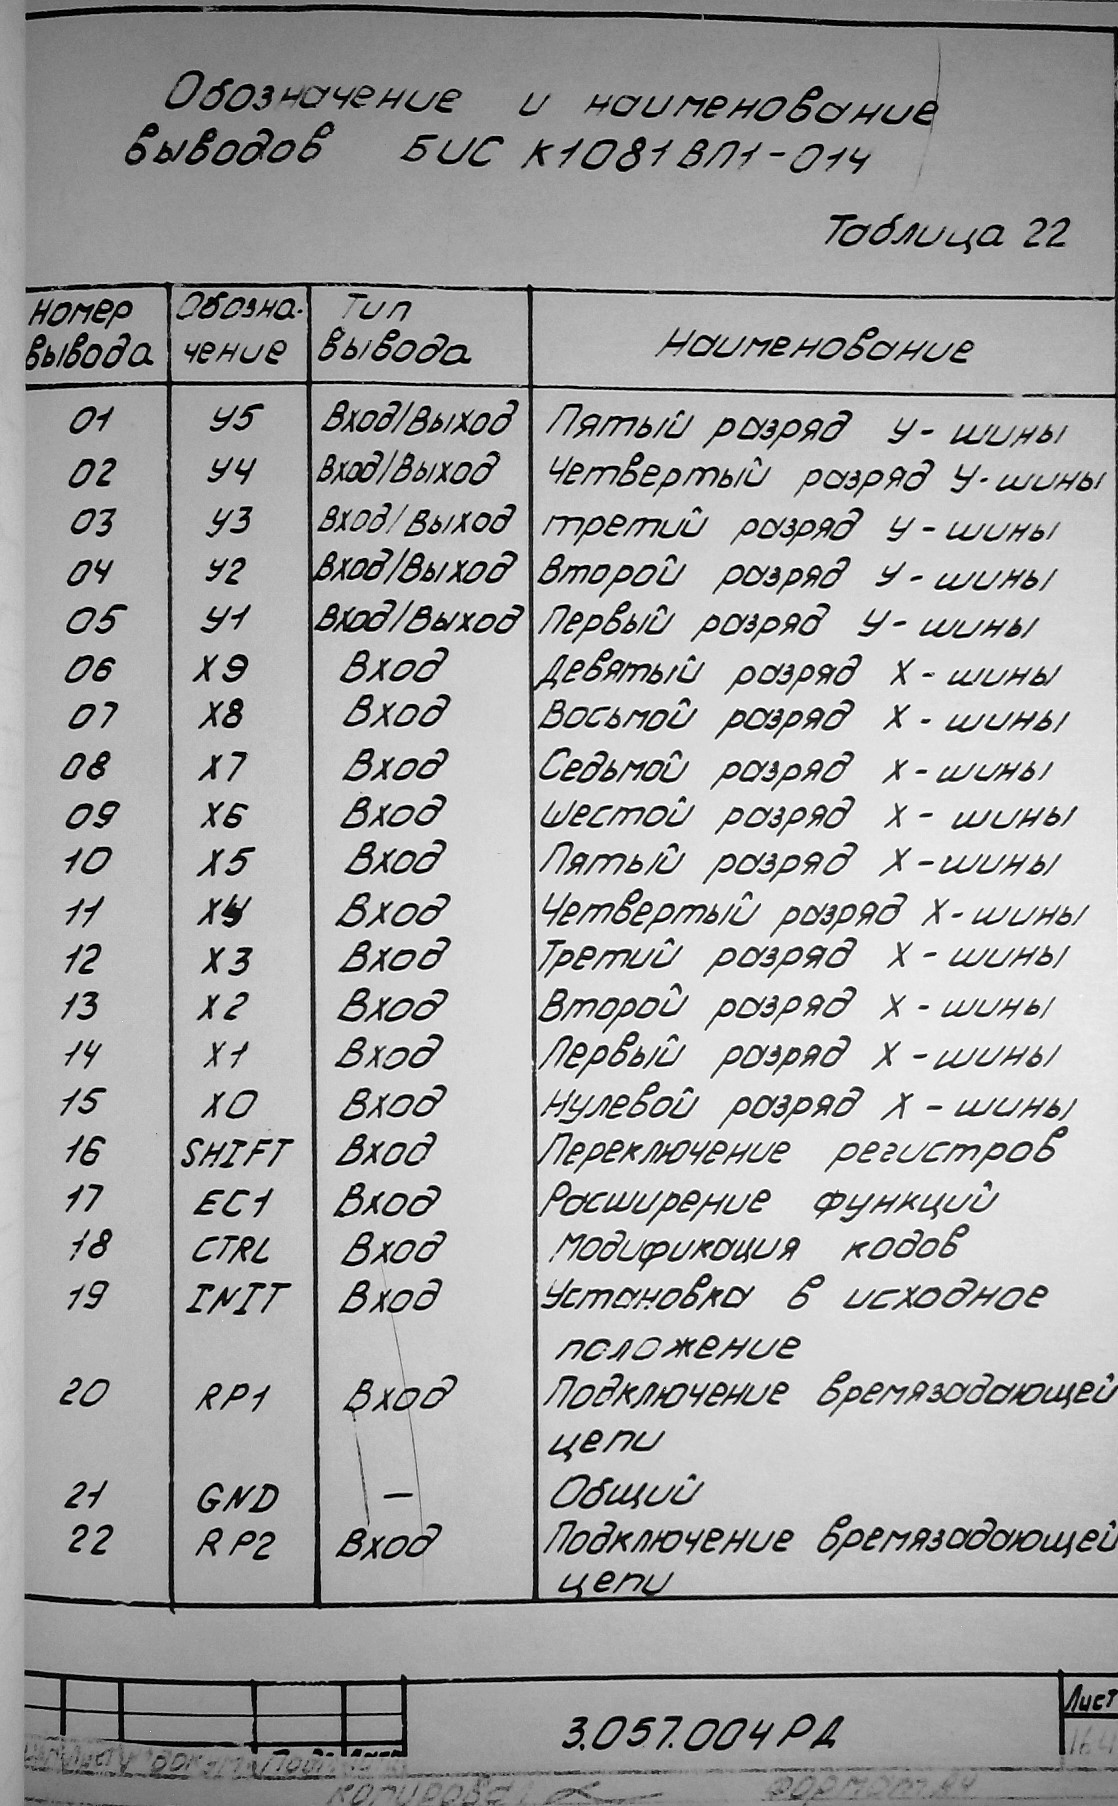 Обозначение и наименование
выводов БИС К1081ВП1-014
Таблица 22
Номер вывода Обозна- чение Тип вывода Наименование
01 У5 Вход/Выход Пятый разряд У-шины
02 У4 Вход/Выход Четвертый разряд У-шины
03 У3 Вход/Выход третий разряд У-шины
04 У2 Вход/Выход Второй разряд У-шины
05 У1 Вход/Выход Первый разряд У-шины
06 Х9 Вход Девятый разряд Х-шины
07 Х8 Вход Восьмой разряд Х-шины
08 Х7 Вход Седьмой разряд Х-шины
09 Х6 Вход Шестой разряд Х-шины
10 Х5 Вход Пятый разряд Х-шины
11 Х4 Вход Четвертый разряд Х-шины
12 Х3 Вход Третий разряд Х-шины
13 Х2 Вход Второй разряд Х-шины
14 Х1 Вход Первый разряд Х-шины
15 Х0 Вход Нулевой разряд Х-шины
16 SHIFT Вход Переключение регистров
17 EC1 Вход Расширение функций
18 CTRL Вход Модификация кодов
19 INIT Вход Установка в исходное
положение
20 RP1 Вход Подключение времязадающей
цепи
21 GND — Общий
22 RP2 Вход Подключение времязадающей
цепи
3.057.004 РД
Лист
164
Копировал Формат А4